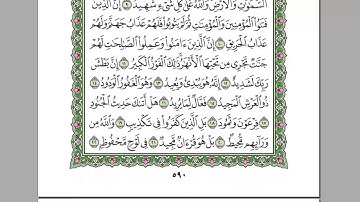 ٱلسَّمَٰوَٰتِ وَٱلْأَرْضِ وَٱللَّهُ عَلَىٰ كُلِّ شَىْءٍ شَهِيدٌ ٩ إِنَّ ٱلَّذِينَ
فَتَنُوا۟ ٱلْمُؤْمِنِينَ وَٱلْمُؤْمِنَٰتِ ثُمَّ لَمْ يَتُوبُوا۟ فَلَهُمْ عَذَابُ جَهَنَّمَ وَلَهُمْ
عَذَابُ ٱلْحَرِيقِ ١٠ إِنَّ ٱلَّذِينَ ءَامَنُوا۟ وَعَمِلُوا۟ ٱلصَّٰلِحَٰتِ لَهُمْ
جَنَّٰتٌ تَجْرِى مِن تَحْتِهَا ٱلْأَنْهَٰرُ ذَٰلِكَ ٱلْفَوْزُ ٱلْكَبِيرُ ١١ إِنَّ بَطْشَ
رَبِّكَ لَشَدِيدٌ ١٢ إِنَّهُۥ هُوَ يُبْدِئُ وَيُعِيدُ ١٣ وَهُوَ ٱلْغَفُورُ ٱلْوَدُودُ ١٤
ذُو ٱلْعَرْشِ ٱلْمَجِيدُ ١٥ فَعَّالٌ لِّمَا يُرِيدُ ١٦ هَلْ أَتَىٰكَ حَدِيثُ ٱلْجُنُودِ
١٧ فِرْعَوْنَ وَثَمُودَ ١٨ بَلِ ٱلَّذِينَ كَفَرُوا۟ فِى تَكْذِيبٍ ١٩ وَٱللَّهُ مِن
وَرَآئِهِم مُّحِيطٌۢ ٢٠ بَلْ هُوَ قُرْءَانٌ مَّجِيدٌ ٢١ فِى لَوْحٍ مَّحْفُوظٍۭ ٢٢
٥٩٠